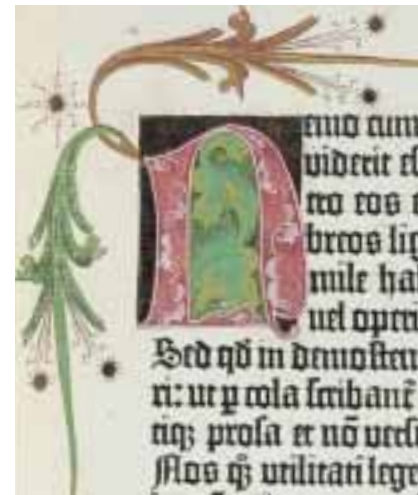 Nemo cum
viderit e
ro eos
breos lig
mile ha
uel oper
Sed qd̄ in demosten
ri: ut p cola scribant̄
tiq; prosa et nō uersi
Nos q; utilitati leg